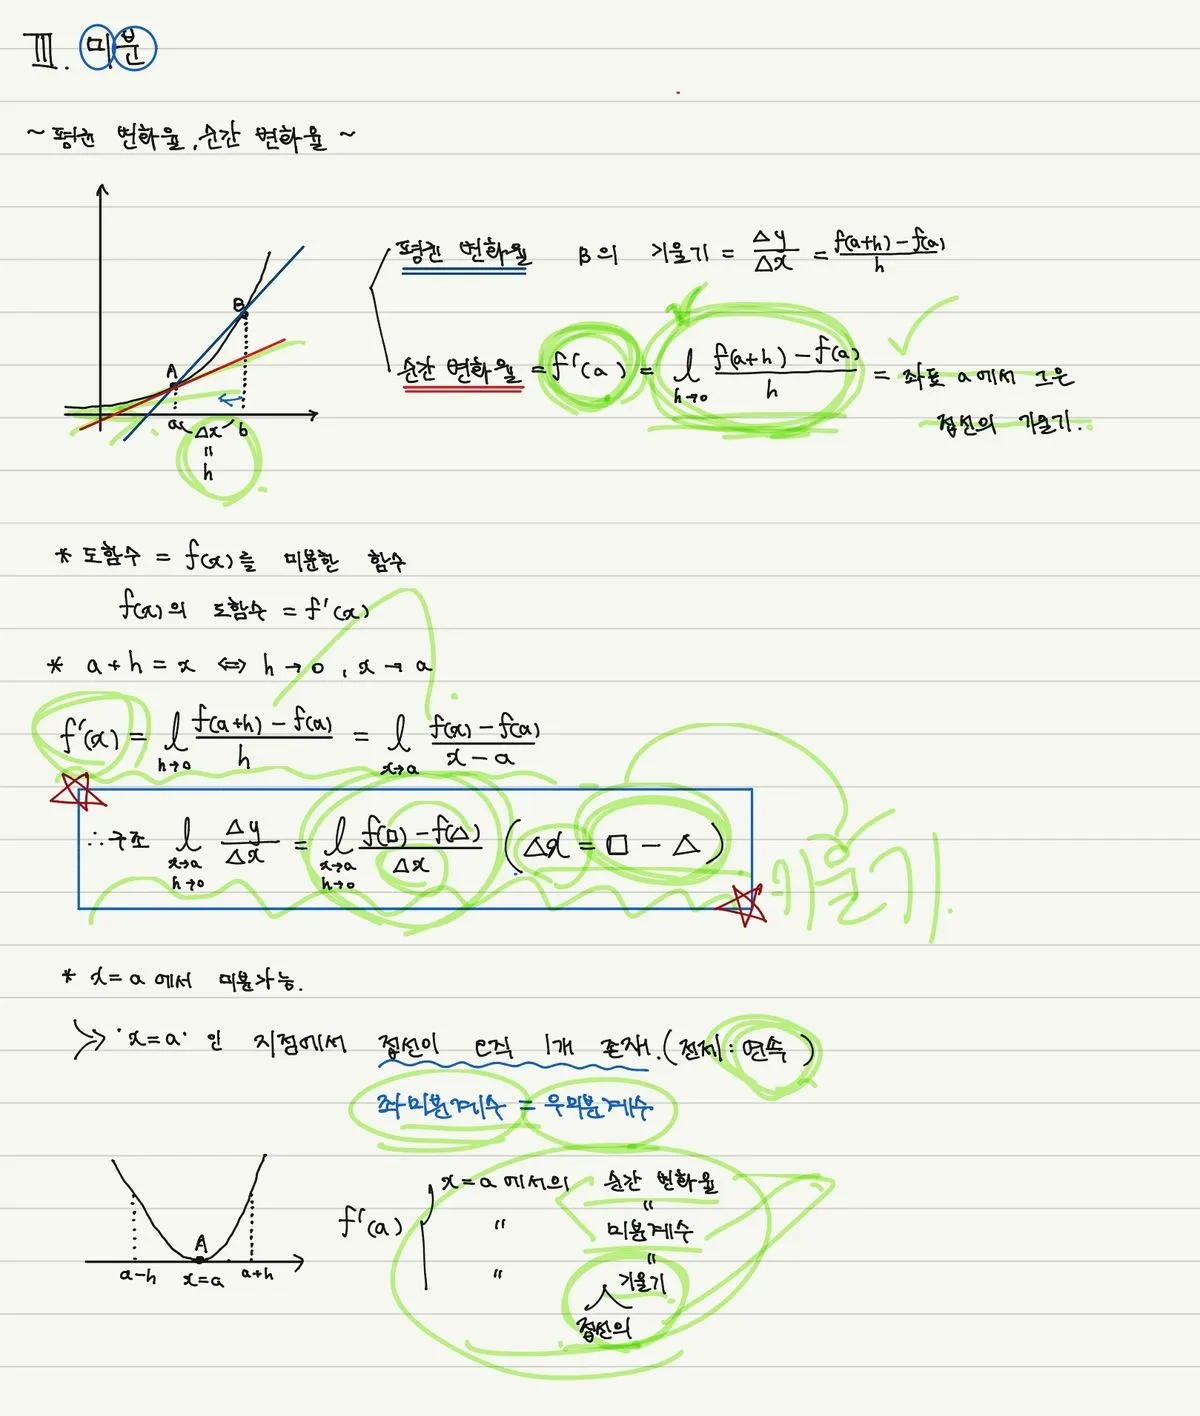 III. 미분
~ 평균 변화율, 순간 변화율 ~
평균 변화율 B의 기울기 = Δy/Δx = f(a+h) - f(a)/h
순간 변화율 = f'(a) = l h→0 f(a+h) - f(a)/h = 좌표 a에서 그은
접선의 기울기.
A
B
a Δx b
"
h
* 도함수 = f(x)를 미분한 함수
f(x)의 도함수 = f'(x)
* a+h = x ⇔ h→0, x→a
f'(x) = l h→0 f(a+h) - f(a)/h = l x→a f(x) - f(a)/x - a
∴ 구조 l x→a h→0 Δy/Δx = l x→a h→0 f(□) - f(△)/Δx (Δx = □ - △)
기울기.
* x=a 에서 미분가능.
≫ 'x=a' 인 지점에서 접선이 오직 1개 존재. (전제 : 연속)
좌미분계수 = 우미분계수
A
a-h x=a a+h
f'(a)
x=a 에서의 순간 변화율
"
" 미분계수
"
" 기울기
접선의